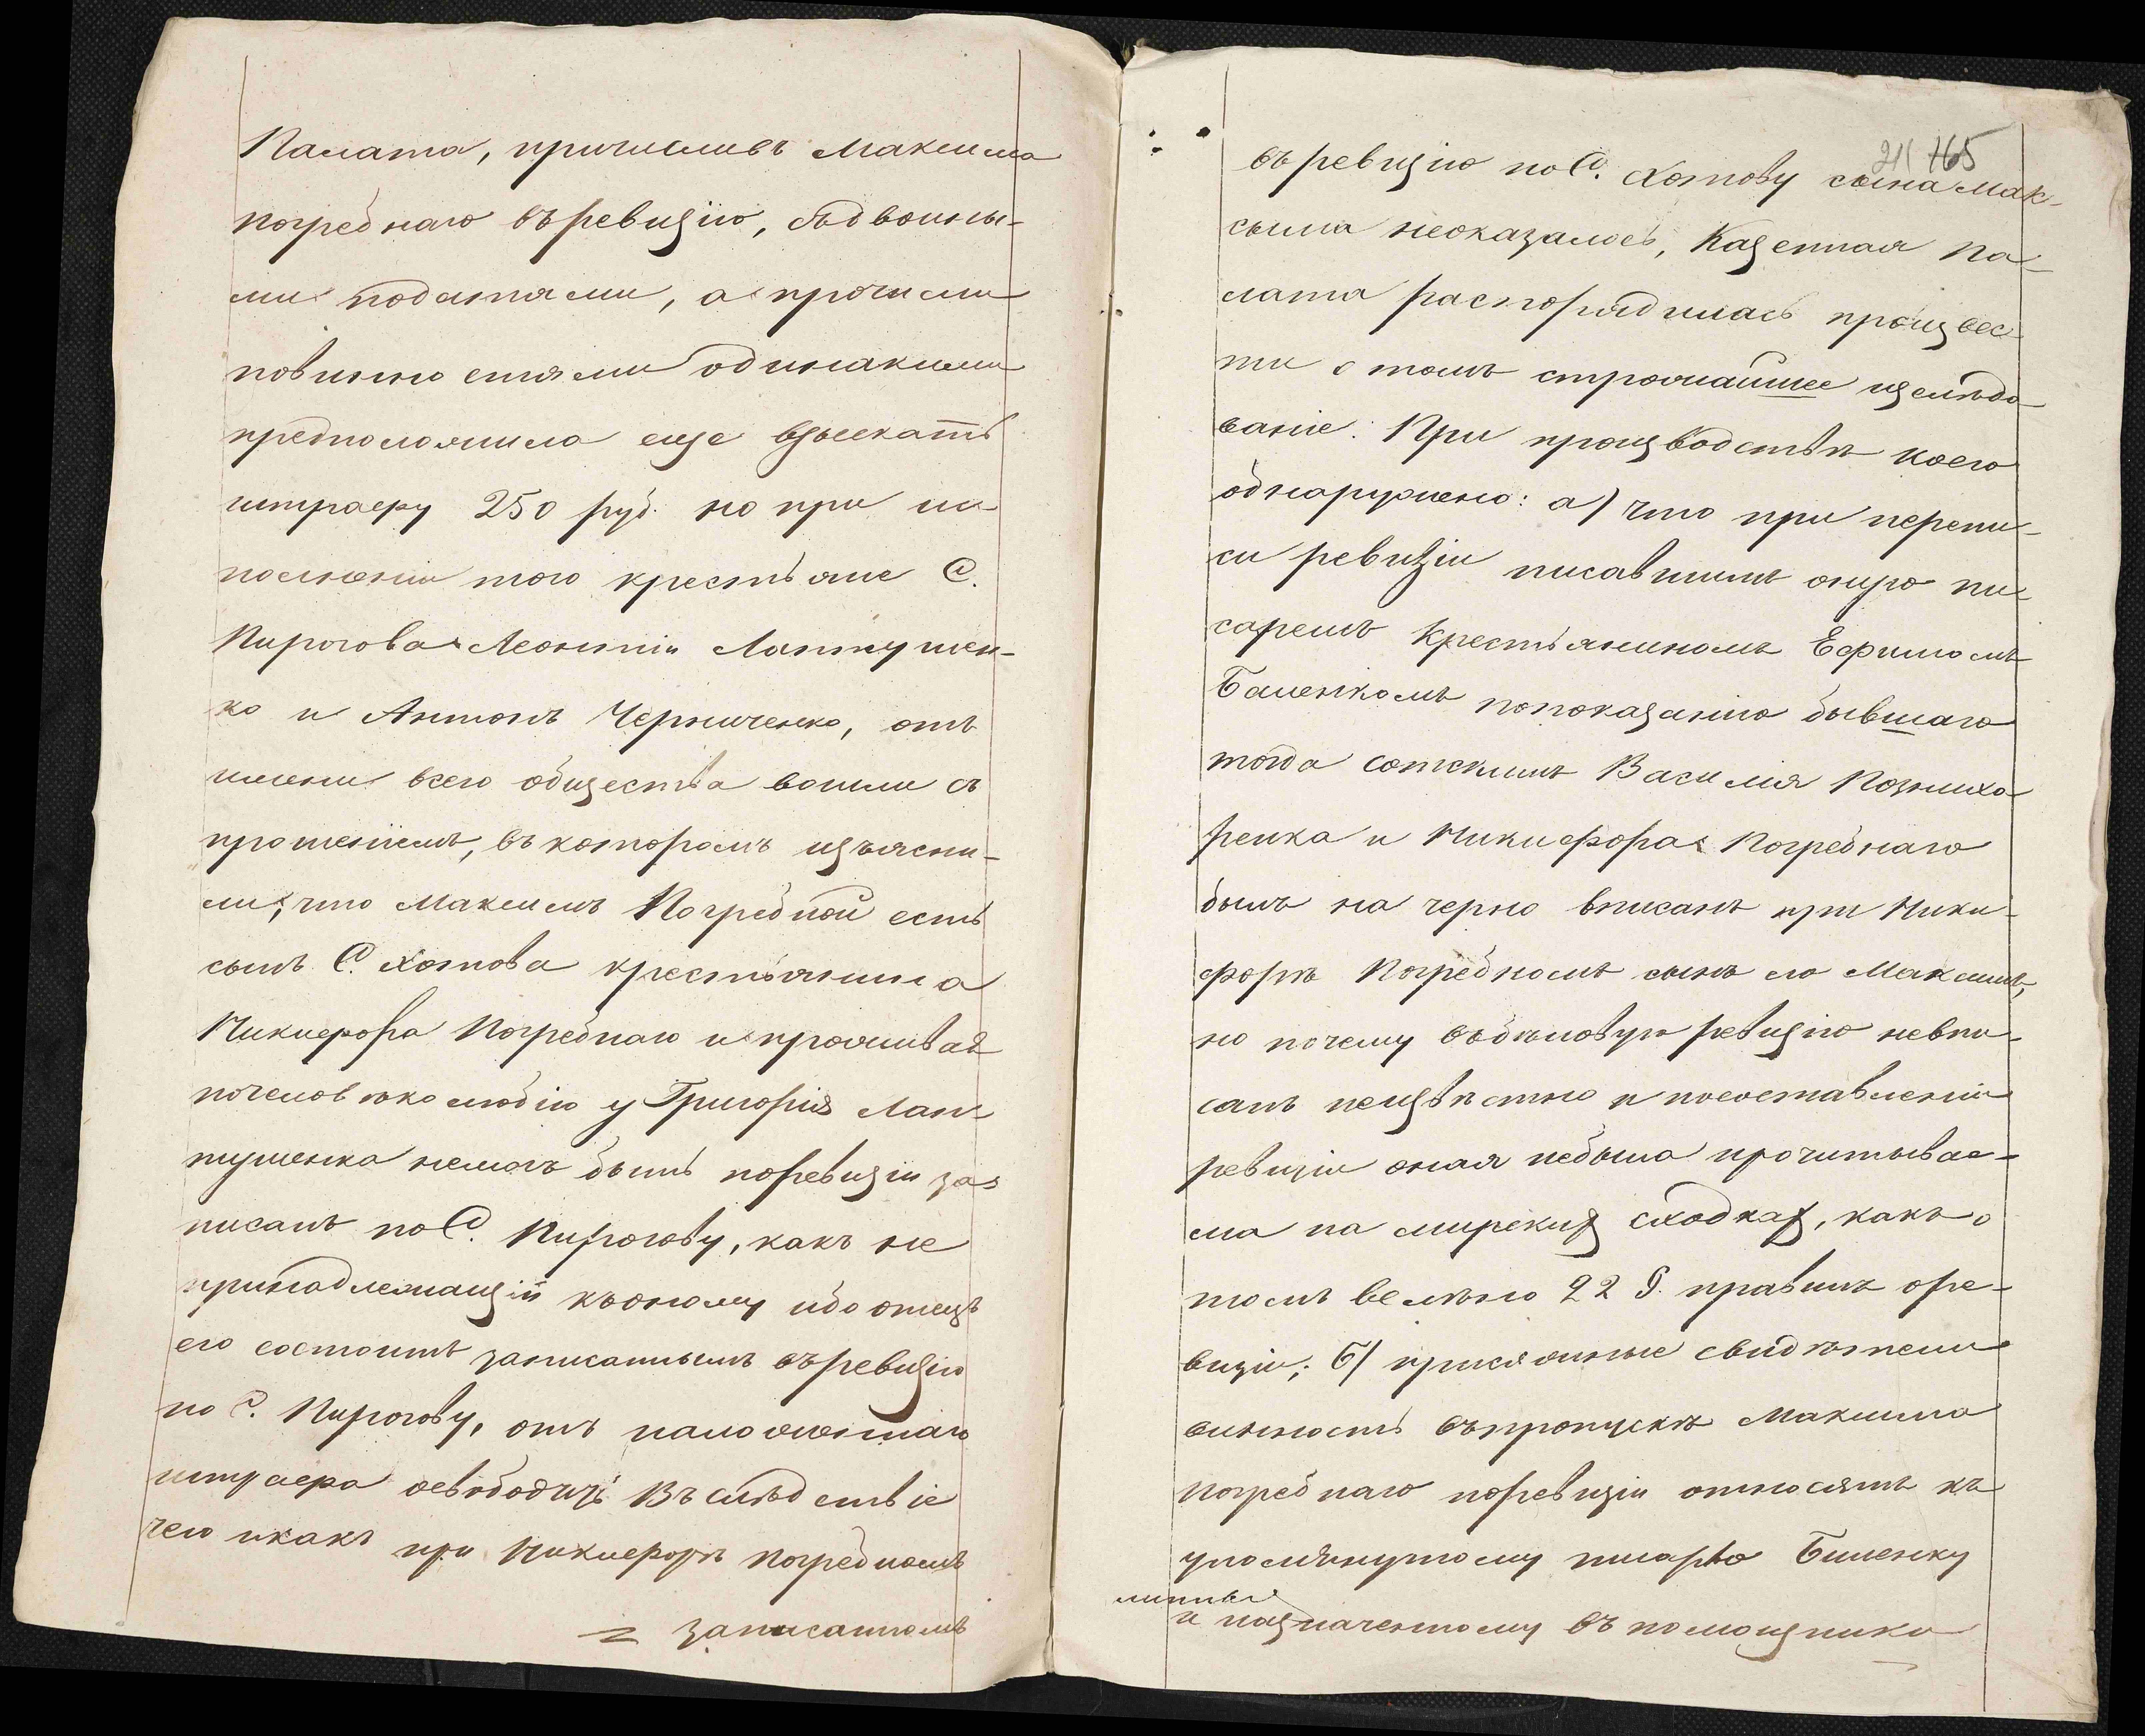 Палата, причисливъ Максима
погребнаго въ ревизію, съ двойны-
ми податями, а прочими
повинностями одинакими
предположила еще взыскать
штрафу 250 руб. но при ис-
полненіи того крестьяне С.
Пирогова Леонтій Лаптушен-
ко и Антонъ Черниченко, отъ
имени всего общества вошли съ
прошеніемъ, въ которомъ изъясни-
ли, что Максимъ Погребной есть
сынъ С. Хотова крестьянина
Никифора Погребнаго и проживая
по человѣколюбію у Григорія Лап
тушенка не могъ быть по ревизіи за-
писанъ по С. Пирогову, какъ не
принадлежащій къ оному ибо отецъ
его состоитъ записаннымъ въ ревизію
по С. Пирогову, отъ наложеннаго
штрафа освободить. Въ слѣдствіе
чего и какъ при Никифорѣ Погребномъ
записанномъ
211 165
въ ревизію по С. Хотову сына Мак-
сима не оказалось, Казенная Па-
лата распорядилась произвес-
ти о томъ строжайшее изслѣдо-
ваніе: При производствѣ коего
обнаружено: а) что при перепи-
си ревизіи писавшимъ оную пи-
саремъ Крестьяниномъ Ефимомъ
по показанію бывшаго
тогда сотскимъ Василія
и Никифора Погребнаго
былъ на черно вписанъ при Ники-
форѣ Погребномъ сынъ его Максимъ,
но почему въ бѣловую ревизію не впи-
санъ неизвѣстно и по составленіи
ревизіи оная не была прочитывае-
ма на мирскихъ сходкахъ, какъ о
томъ велѣно 22 §. правилъ о ре-
визіи; Б) присяжные свидѣтели
винность въ пропускѣ Максима
погребнаго по ревизіи относятъ къ
упомянутому писарю Биленку
и назначенному въ помощники